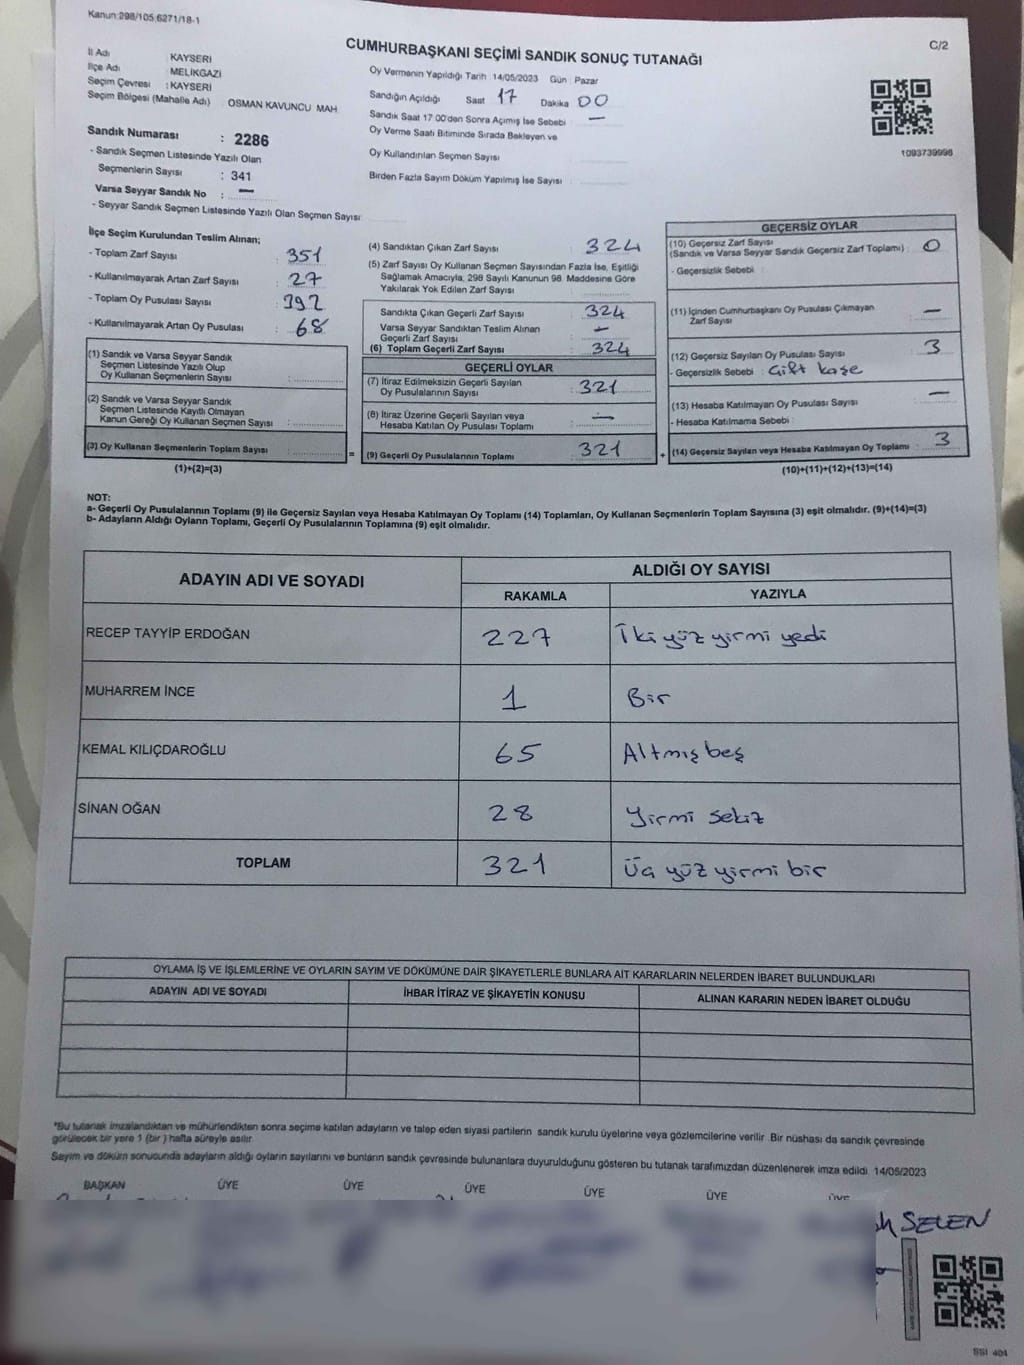 Kanun:298/105,6271/18-1
C/2
CUMHURBAŞKANI SEÇİMİ SANDIK SONUÇ TUTANAĞI
İl Adı KAYSERİ
İlçe Adı : MELİKGAZİ
Seçim Çevresi : KAYSERİ
Seçim Bölgesi (Mahalle Adı) OSMAN KAVUNCU MAH.
Sandık Numarası : 2286
- Sandık Seçmen Listesinde Yazılı Olan
Seçmenlerin Sayısı : 341
Varsa Seyyar Sandık No : —
- Seyyar Sandık Seçmen Listesinde Yazılı Olan Seçmen Sayısı
Oy Vermenin Yapıldığı Tarih 14/05/2023 Gün : Pazar
Sandığın Açıldığı Saat 17 Dakika 00
Sandık Saat 17:00'den Sonra Açımış İse Sebebi : —
Oy Verme Saati Bitiminde Sırada Bekleyen ve
Oy Kullandırılan Seçmen Sayısı :
Birden Fazla Sayım Döküm Yapılmış İse Sayısı :
1093739996
İlçe Seçim Kurulundan Teslim Alınan;
- Toplam Zarf Sayısı : 351
- Kullanılmayarak Artan Zarf Sayısı : 27
- Toplam Oy Pusulası Sayısı : 392
- Kullanılmayarak Artan Oy Pusulası : 68
(1) Sandık ve Varsa Seyyar Sandık
Seçmen Listesinde Yazılı Olup
Oy Kullanan Seçmenlerin Sayısı :
(2) Sandık ve Varsa Seyyar Sandık
Seçmen Listesinde Kayıtlı Olmayan
Kanun Gereği Oy Kullanan Seçmen Sayısı :
(3) Oy Kullanan Seçmenlerin Toplam Sayısı :
(1)+(2)=(3)
(4) Sandıktan Çıkan Zarf Sayısı : 324
(5) Zarf Sayısı Oy Kullanan Seçmen Sayısından Fazla İse, Eşitliği
Sağlamak Amacıyla, 298 Sayılı Kanunun 98. Maddesine Göre
Yakılarak Yok Edilen Zarf Sayısı :
Sandıkta Çıkan Geçerli Zarf Sayısı : 324
Varsa Seyyar Sandıktan Teslim Alınan
Geçerli Zarf Sayısı : —
(6) Toplam Geçerli Zarf Sayısı : 324
GEÇERLİ OYLAR
(7) İtiraz Edilmeksizin Geçerli Sayılan
Oy Pusulalarının Sayısı : 321
(8) İtiraz Üzerine Geçerli Sayılan veya
Hesaba Katılan Oy Pusulası Toplamı : —
= (9) Geçerli Oy Pusulalarının Toplamı : 321
GEÇERSİZ OYLAR
(10) Geçersiz Zarf Sayısı
(Sandık ve Varsa Seyyar Sandık Geçersiz Zarf Toplamı) : 0
- Geçersizlik Sebebi :
(11) İçinden Cumhurbaşkanı Oy Pusulası Çıkmayan
Zarf Sayısı : —
(12) Geçersiz Sayılan Oy Pusulası Sayısı : 3
- Geçersizlik Sebebi : Çift kaşe
(13) Hesaba Katılmayan Oy Pusulası Sayısı : —
- Hesaba Katılmama Sebebi :
+ (14) Geçersiz Sayılan veya Hesaba Katılmayan Oy Toplamı : 3
(10)+(11)+(12)+(13)=(14)
NOT:
a- Geçerli Oy Pusulalarının Toplamı (9) ile Geçersiz Sayılan veya Hesaba Katılmayan Oy Toplamı (14) Toplamları, Oy Kullanan Seçmenlerin Toplam Sayısına (3) eşit olmalıdır. (9)+(14)=(3)
b- Adayların Aldığı Oyların Toplamı, Geçerli Oy Pusulalarının Toplamına (9) eşit olmalıdır.
ADAYIN ADI VE SOYADI ALDIĞI OY SAYISI
RAKAMLA YAZIYLA
RECEP TAYYİP ERDOĞAN 227 İki yüz yirmi yedi
MUHARREM İNCE 1 Bir
KEMAL KILIÇDAROĞLU 65 Altmış beş
SİNAN OĞAN 28 Yirmi sekiz
TOPLAM 321 Üç yüz yirmi bir
OYLAMA İŞ VE İŞLEMLERİNE VE OYLARIN SAYIM VE DÖKÜMÜNE DAİR ŞİKAYETLERLE BUNLARA AİT KARARLARIN NELERDEN İBARET BULUNDUKLARI
ADAYIN ADI VE SOYADI İHBAR İTİRAZ VE ŞİKAYETİN KONUSU ALINAN KARARIN NEDEN İBARET OLDUĞU
*Bu tutanak imzalandıktan ve mühürlendikten sonra seçime katılan adayların ve talep eden siyasi partilerin sandık kurulu üyelerine veya gözlemcilerine verilir. Bir nüshası da sandık çevresinde
görülecek bir yere 1 (bir) hafta süreyle asılır.
Sayım ve döküm sonucunda adayların aldığı oyların sayılarını ve bunların sandık çevresinde bulunanlara duyurulduğunu gösteren bu tutanak tarafımızdan düzenlenerek imza edildi. 14/05/2023
BAŞKAN ÜYE ÜYE ÜYE ÜYE ÜYE ÜYE
SELEN
BSI 404